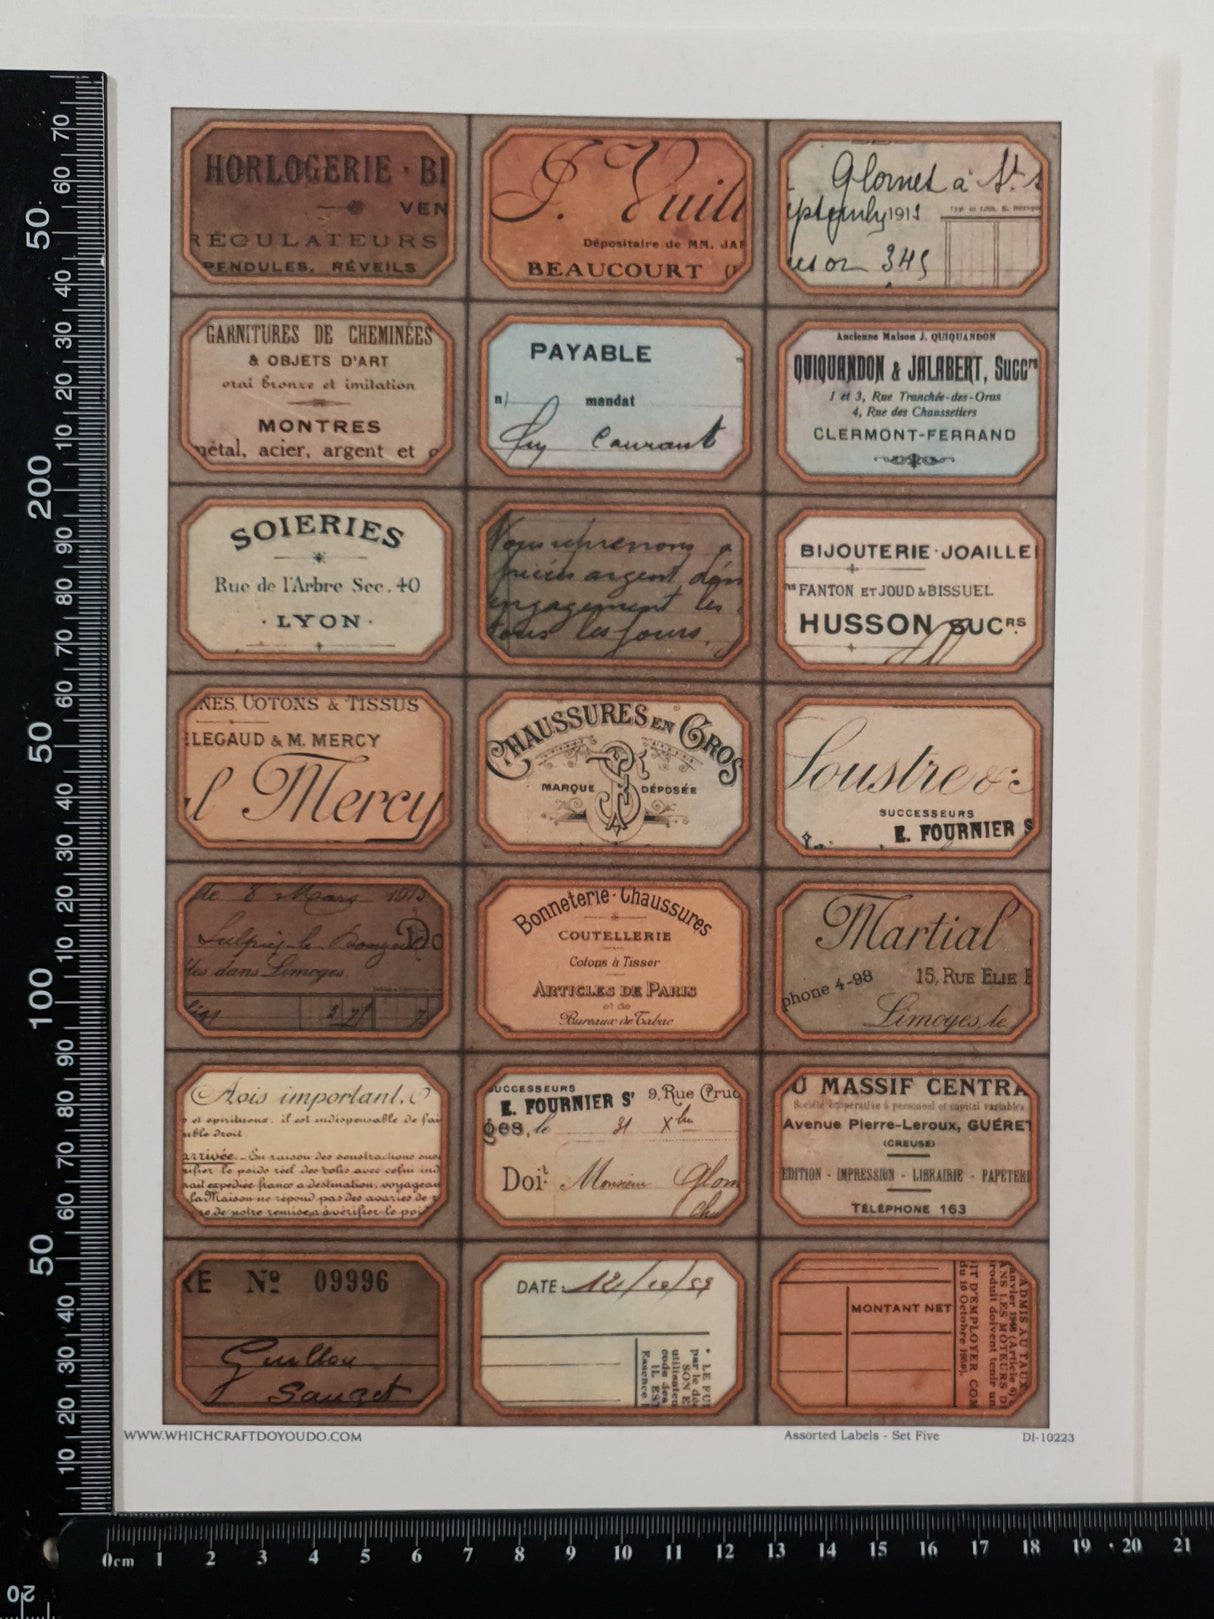 HORLOGERIE · BI
VEN
RÉGULATEURS
PENDULES, RÉVEILS
J. Vuill
Dépositaire de MM. JAP
BEAUCOURT
Glomet à St. s
1911
345
GARNITURES DE CHEMINÉES
& OBJETS D'ART
vrai bronze et imitation
MONTRES
métal, acier, argent et o
PAYABLE
n/ mandat
courant
Ancienne Maison J. QUIQUANDON
QUIQUANDON & JALABERT, Succrs
1 et 3, Rue Tranchée-des-Gras
4, Rue des Chaussetiers
CLERMONT-FERRAND
SOIERIES
Rue de l'Arbre Sec. 40
· LYON ·
Nous reprenons
pièces argent dans
engagement les
tous les jours.
BIJOUTERIE · JOAILLE
ns FANTON ET JOUD & BISSUEL
HUSSON SUCRS
NES COTONS & TISSUS
LEGAUD & M. MERCY
l Mercy
CHAUSSURES EN GROS
MARQUE DÉPOSÉE
Loustre & C
SUCCESSEURS
E. FOURNIER S
le 8 Mars 1913
Do
tes dans Limoges
Bonneterie · Chaussures
COUTELLERIE
Cotons à Tisser
ARTICLES DE PARIS
et de
Bureaux de Tabac
Martial
phone 4-98 15, RUE ELIE B
Limoges, le
Avis important.
et spiritueux, il est indispensable de fai
uble droit.
arrivée. - En raison des soustractions
rifier le poids réel des colis avec celui ind
rait expédiée franco a destination, voyagean
La Maison ne répond pas des avaries de
de notre remise, à vérifier le poi
UCCESSEURS
E. FOURNIER Sr 9, Rue Cruc
ges, le 31 Xbre
Doit Monsieur Glom
U MASSIF CENTRA
Société coopérative à personnel et capital variables
Avenue Pierre-Leroux, GUÉRET
(CREUSE)
EDITION - IMPRESSION - LIBRAIRIE - PAPETERI
TÉLÉPHONE 163
RE No 09996
Guillou
Sauzet
DATE: 12/10/59
* LE FU
par le dé
SON E
utilisateu
code des
IL EST
Essence
MONTANT NET
ADMIS AU TAUX
anvier 1948 (Article 6)
ANS LES MOTEURS D
roduit doivent tenir un
IT D'EMPLOYER COM
du 16 Octobre 1959).
WWW.WHICHCRAFTDOYOUDO.COM
Assorted Labels - Set Five
DI-10223
70
60
50
40
30
20
10
200
90
80
70
60
50
40
30
20
10
100
90
80
70
60
50
40
30
20
10
0cm 1 2 3 4 5 6 7 8 9 10 11 12 13 14 15 16 17 18 19 20 21
20